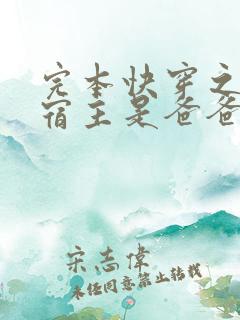 完本快穿之
宿主是爸爸
宋志偉
未经同意禁止转载